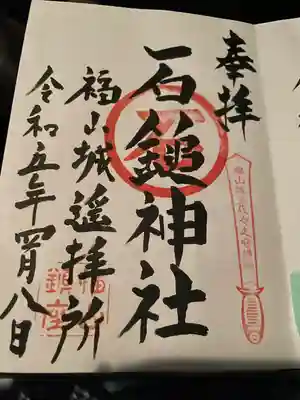 奉拝
石鎚神社
福山城遙拝所
令和五年四月八日
鎮座